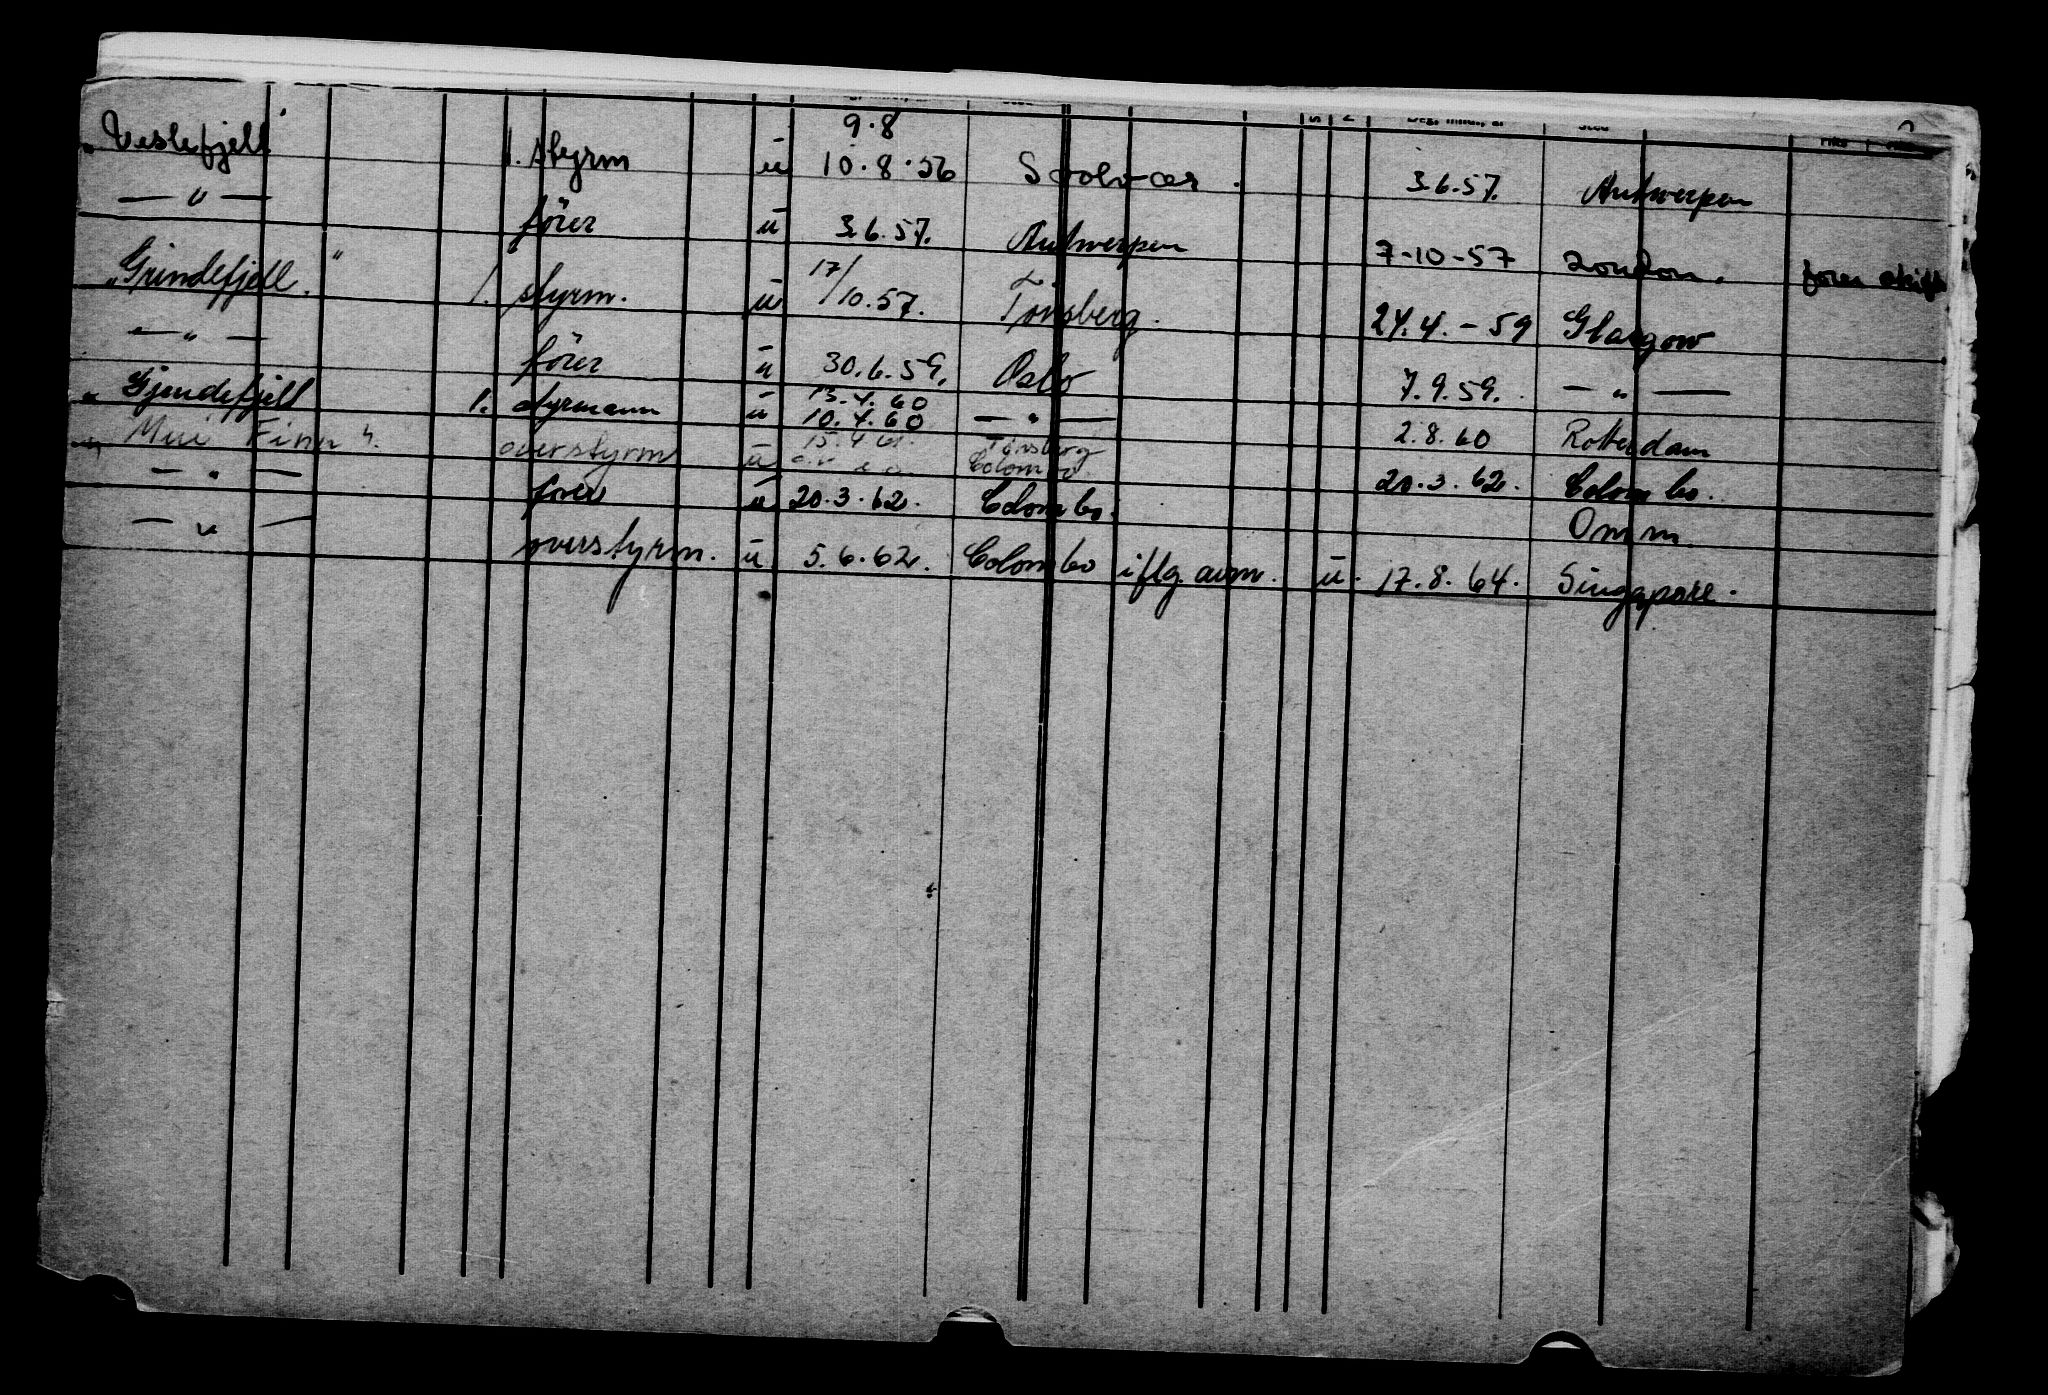 9.8
„Veslefjell" 1. styrm u 10.8.56 Svolvær. 3.6.57. Antwerpen
— " — förer u 3.6.57. Antwerpen 7-10-57 London. fører skift
„Grindefjell." 1. styrm. u 17/10.57. Tönsberg. 24.4.-59 Glasgow
— " — förer u 30.6.59. Oslo 7.9.59. — " —
13.4.60
„Gjendefjell 1. styrmann u 10.4.60 — " — 2.8.60 Rotterdam
15.4.61. Tønsberg
„Mui Finn". overstyrm u Colombo. 20.3.62. Colombo.
— " — fører u 20.3.62. Colombo. Omm.
— " — overstyrm. u 5.6.62. Colombo iflg. avm. u. 17.8.64. Singapore.